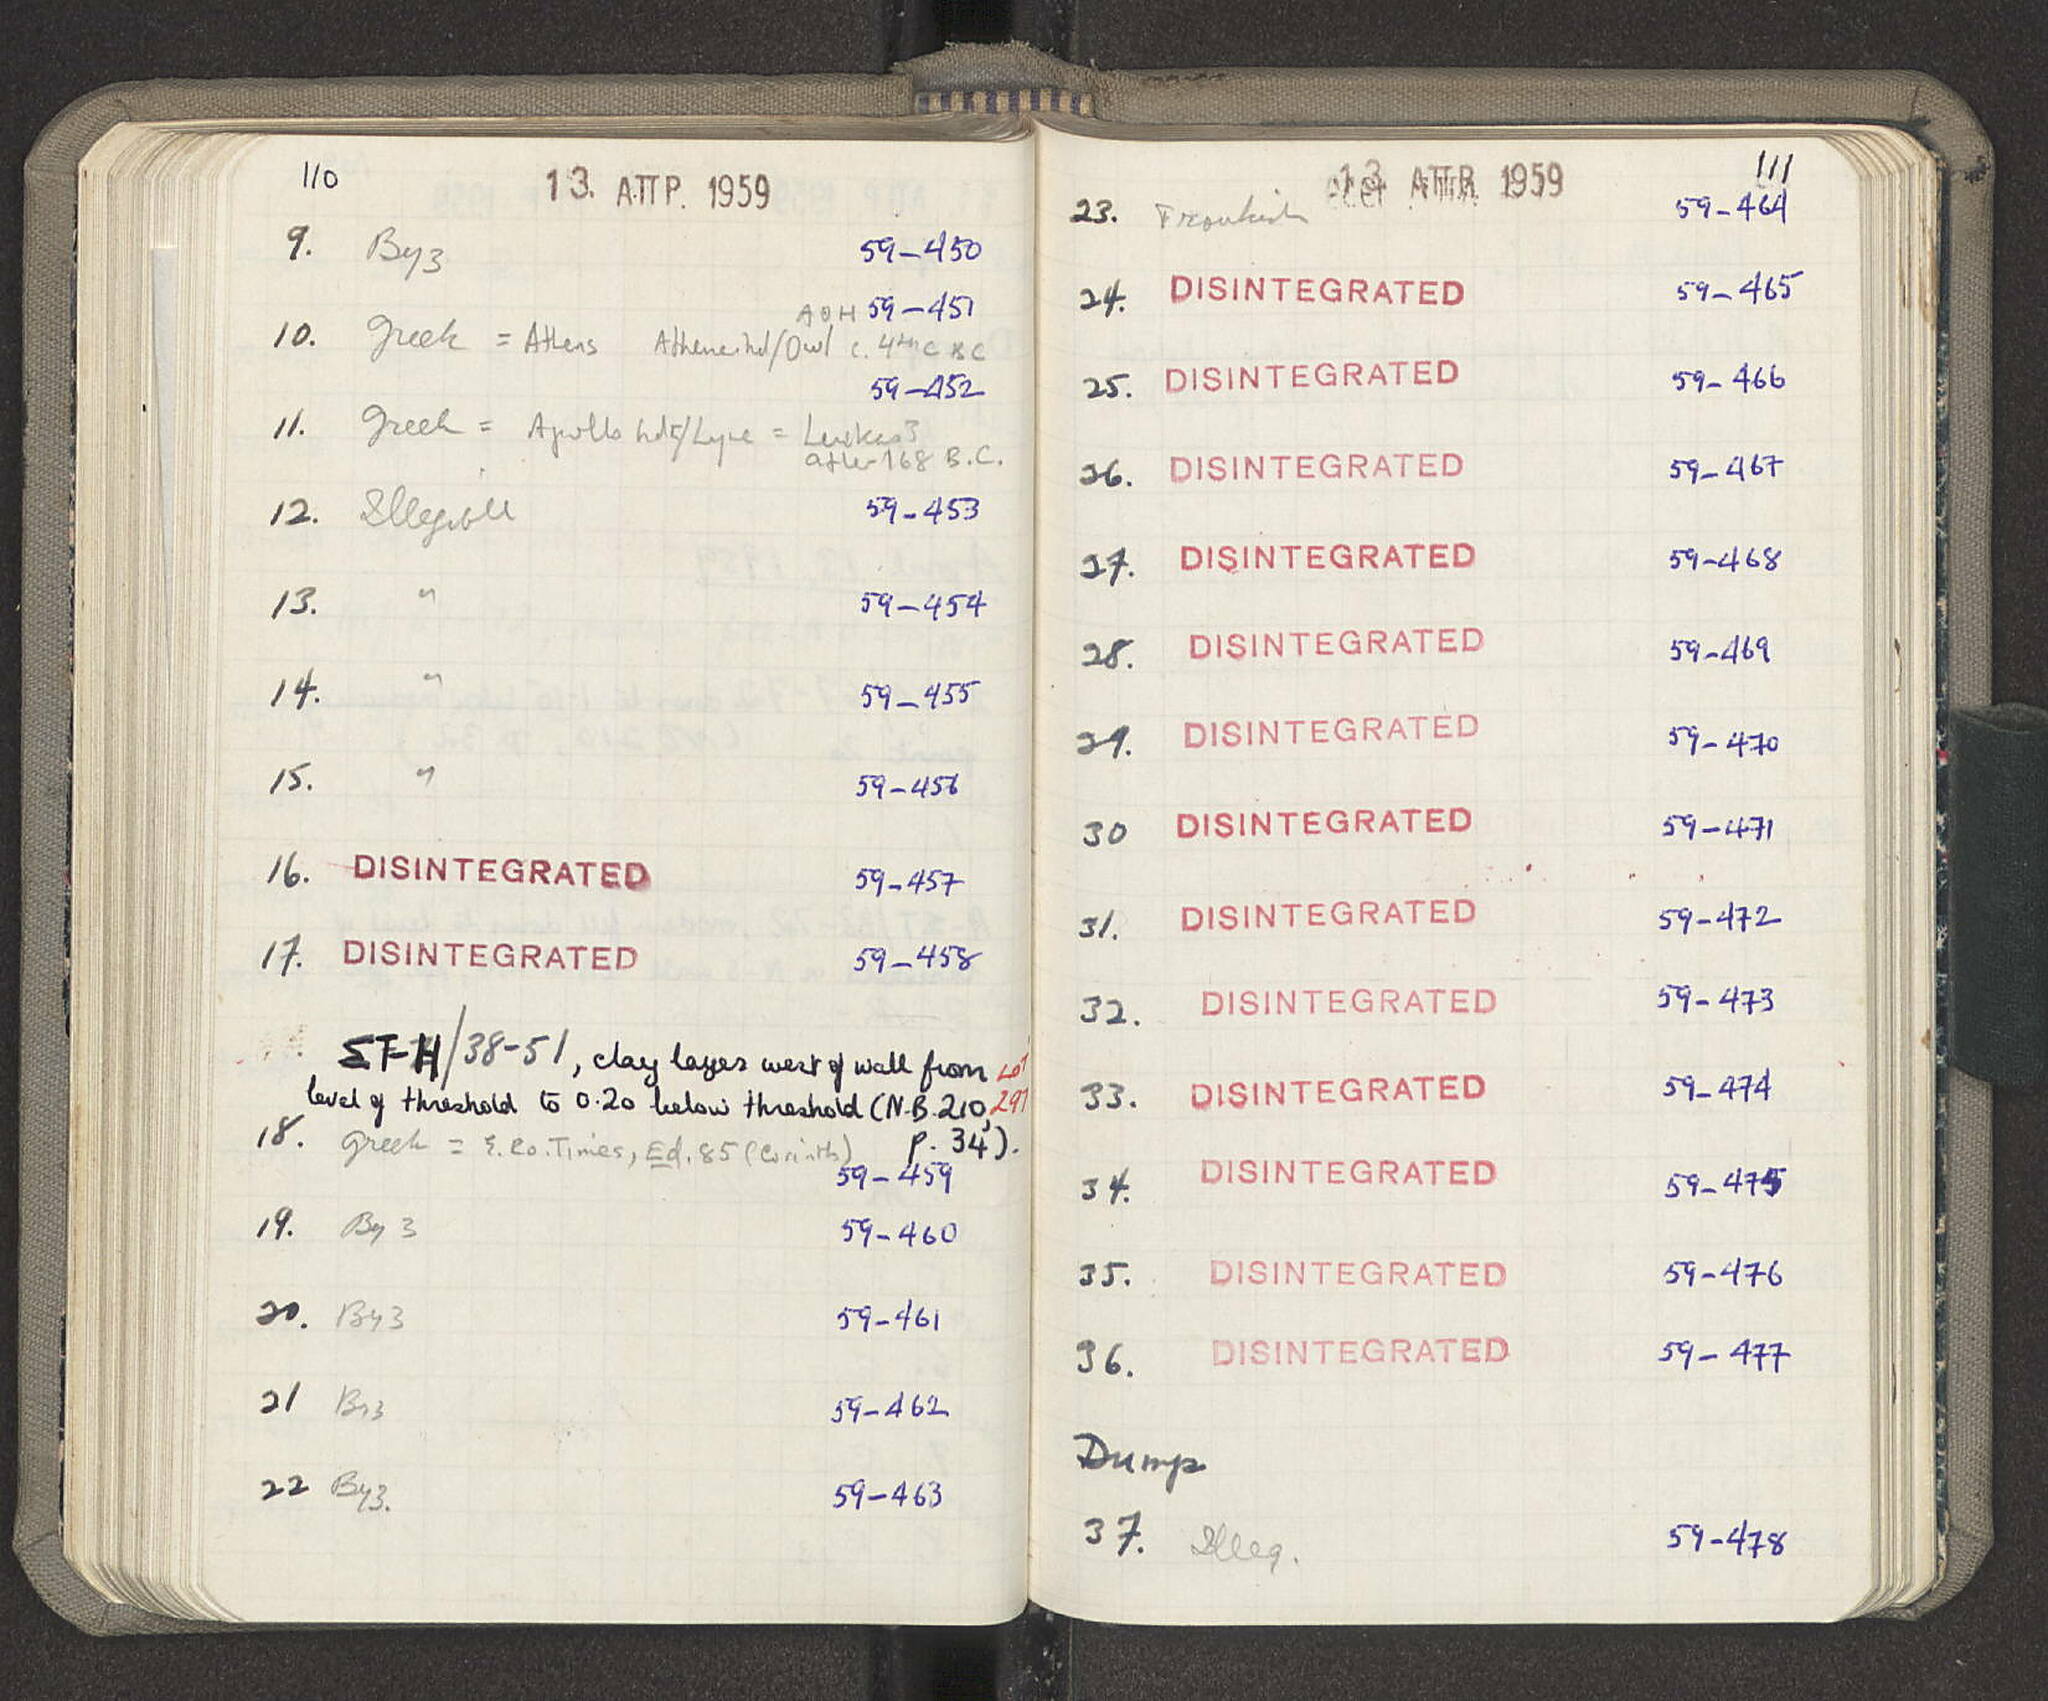 110
13. ΑΠΡ. 1959
9. Byz 59-450
59-451
10. Greek = Athens Athena hd/Owl c. 4th C BC
59-452
11. Greek = Apollo hd/Lyre =
after 168 B.C.
12. Illegible 59-453
13. " 59-454
14. " 59-455
15. " 59-456
16. DISINTEGRATED 59-457
17. DISINTEGRATED 59-458
ΣΤ-H/38-51, clay layer west of wall from LOT
level of threshold to 0.20 below threshold (N.B. 210, 297
p. 34).
18. Greek = Co. Times, Ed. 85 (Corinth)
59-459
19. Byz 59-460
20. Byz 59-461
21 Byz 59-462
22 Byz. 59-463
111
13 ΑΠΡ. 1959
23. Frankish 59-464
24. DISINTEGRATED 59-465
25. DISINTEGRATED 59-466
26. DISINTEGRATED 59-467
27. DISINTEGRATED 59-468
28. DISINTEGRATED 59-469
29. DISINTEGRATED 59-470
30 DISINTEGRATED 59-471
31. DISINTEGRATED 59-472
32. DISINTEGRATED 59-473
33. DISINTEGRATED 59-474
34. DISINTEGRATED 59-475
35. DISINTEGRATED 59-476
36. DISINTEGRATED 59-477
Dump
37. Illeg. 59-478